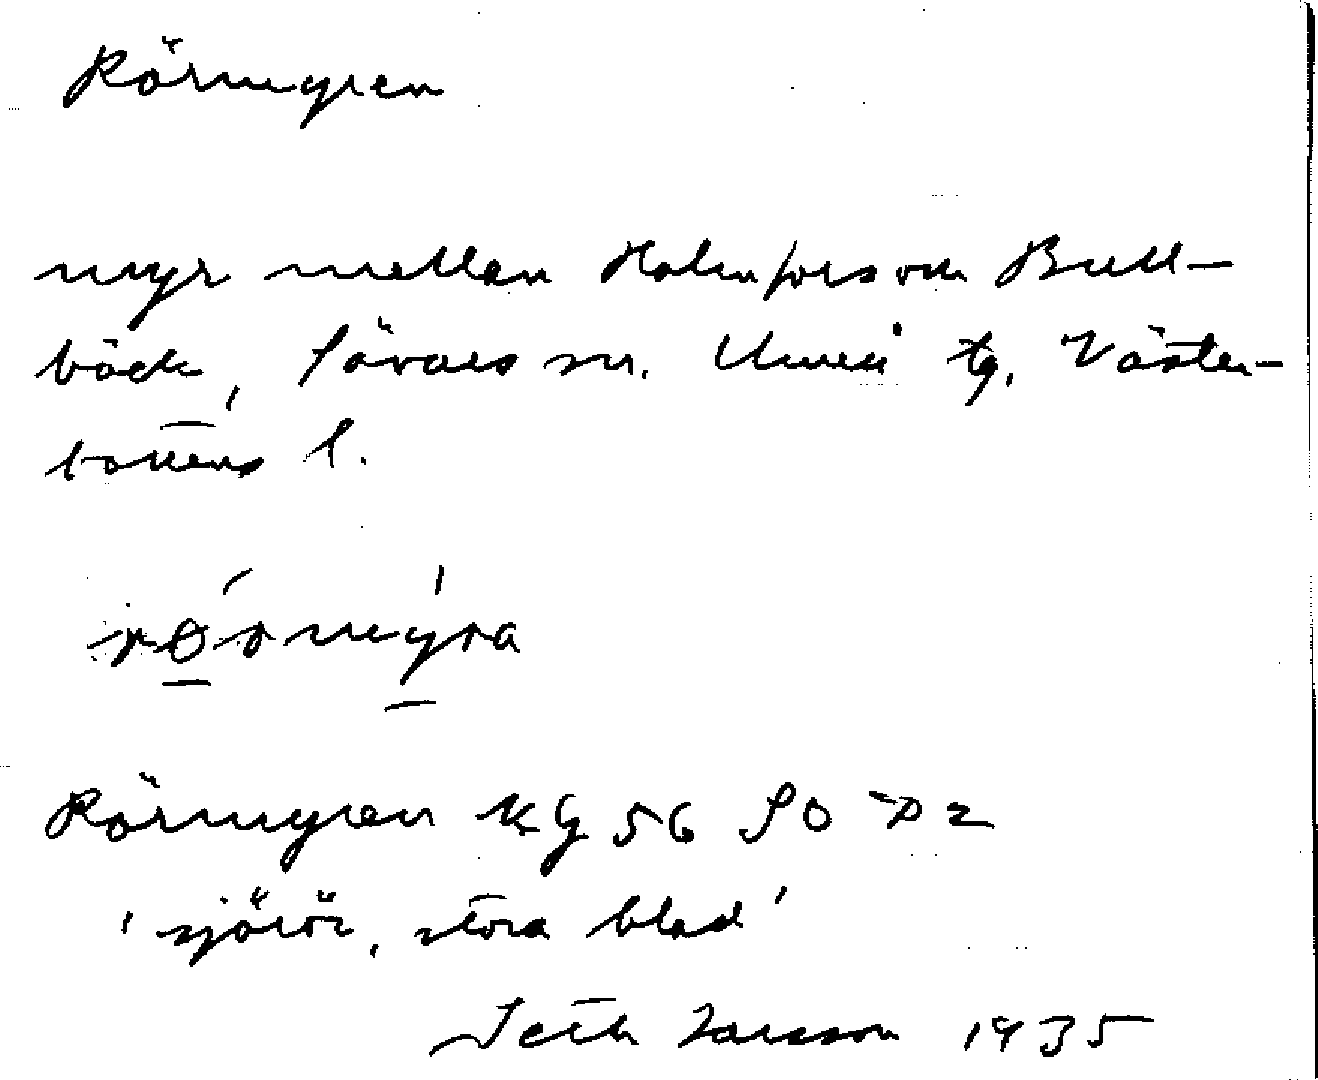 Rörmyren
myr mellan Holmfors och Bull-
bäck, Sävars sn. Umeå tg. Väster-
bottens l.
Rörmyren KG 56 SO
'sjörör, stora blad'
Seth Larsson 1935